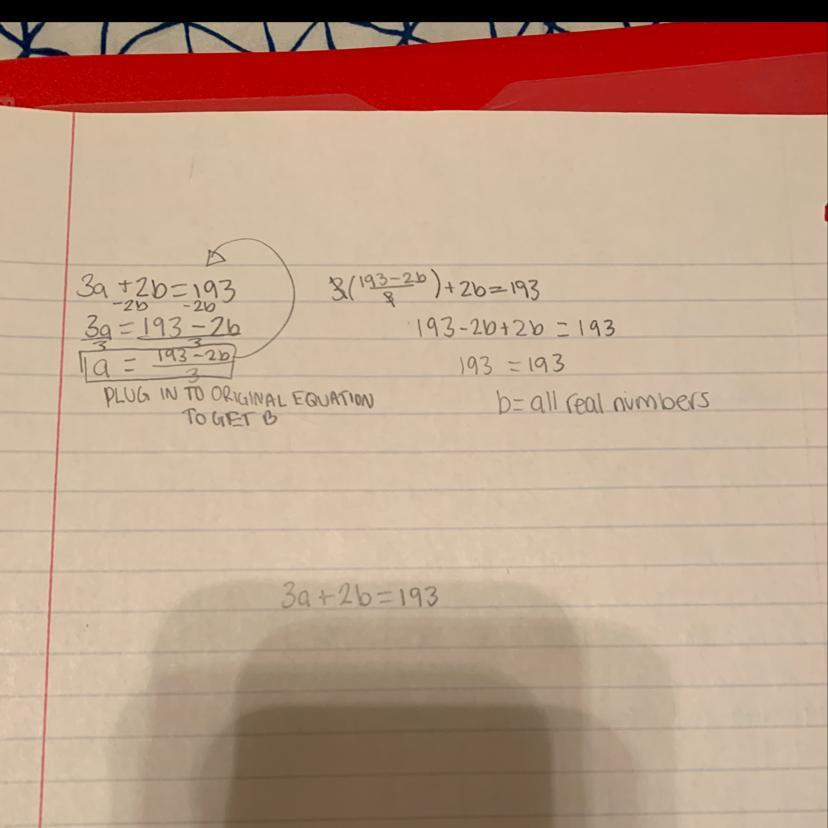 3a + 2b = 193
-2b -2b
3a = 193 - 2b
3 3
a = 193 - 2b
3
PLUG IN TO ORIGINAL EQUATION
TO GET B
3(193-2b/3) + 2b = 193
193 - 2b + 2b = 193
193 = 193
b = all real numbers
3a + 2b = 193